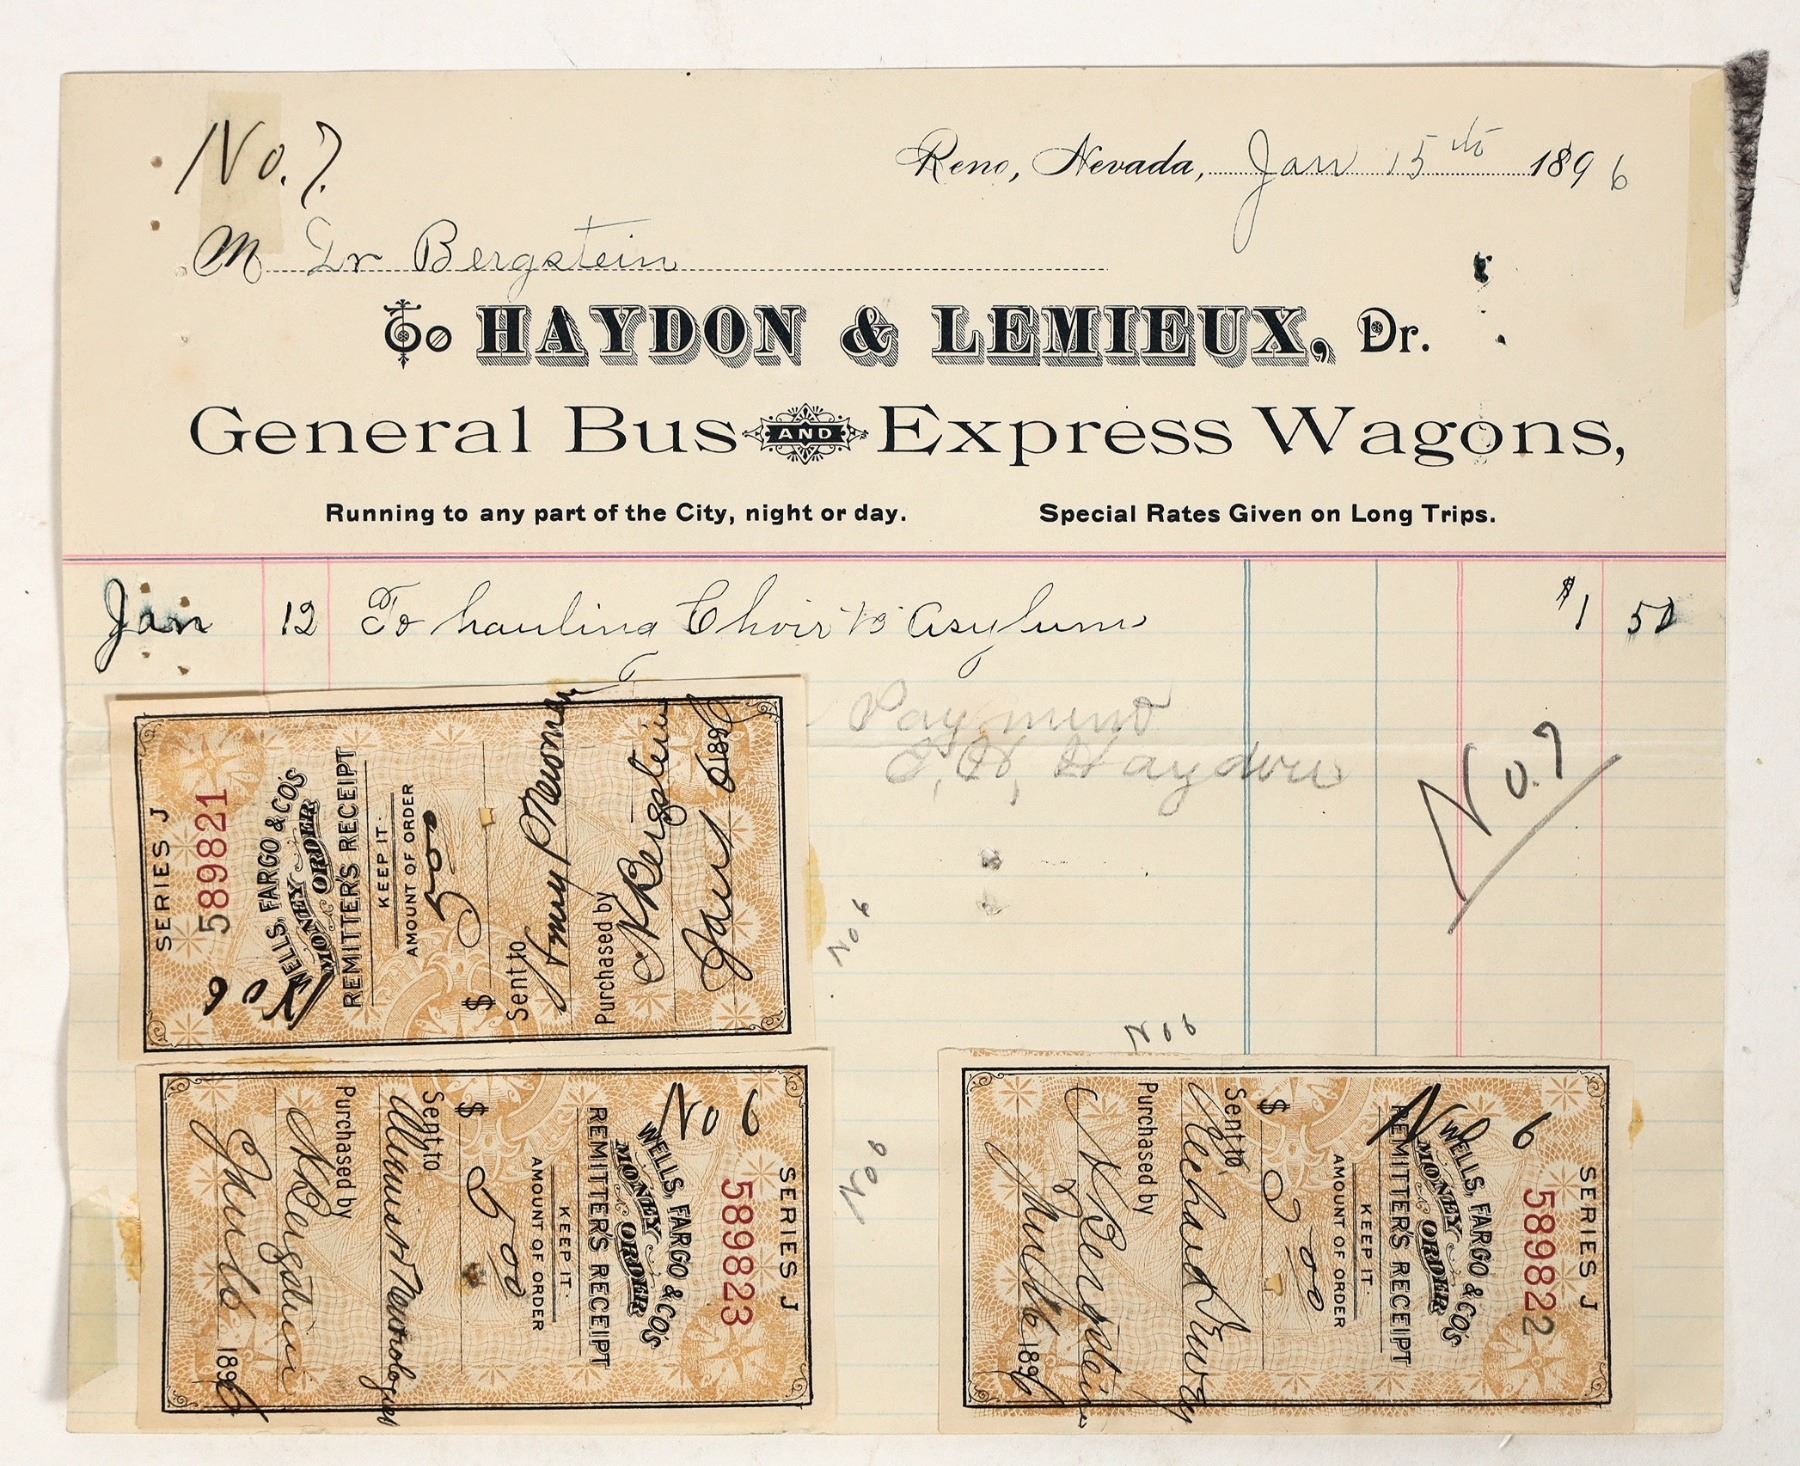 No. 7.
Reno, Nevada, Jan 15th 1896
M Dr Bergstein
To HAYDON & LEMIEUX, Dr.
General Bus AND Express Wagons,
Running to any part of the City, night or day. Special Rates Given on Long Trips.
Jan 12 To hauling Choir to Asylum $1 50
Payment
Haydon
No. 7
No 6
No 6
No 6
SERIES J
589821
No 6
WELLS, FARGO & CO'S
MONEY ORDER
REMITTER'S RECEIPT
KEEP IT.
AMOUNT OF ORDER
$ 500
Sent to
Purchased by
H Bergstein
Jan 6 1896
SERIES J
589823
No 6
WELLS, FARGO & CO'S
MONEY ORDER
REMITTER'S RECEIPT
KEEP IT.
AMOUNT OF ORDER
$ 500
Sent to
Alienist & Neurologist
Purchased by
H Bergstein
Jan 6 1896
SERIES J
589822
No 6
WELLS, FARGO & CO'S
MONEY ORDER
REMITTER'S RECEIPT
KEEP IT.
AMOUNT OF ORDER
$
Sent to
Purchased by
H Bergstein
Jan 6 1896